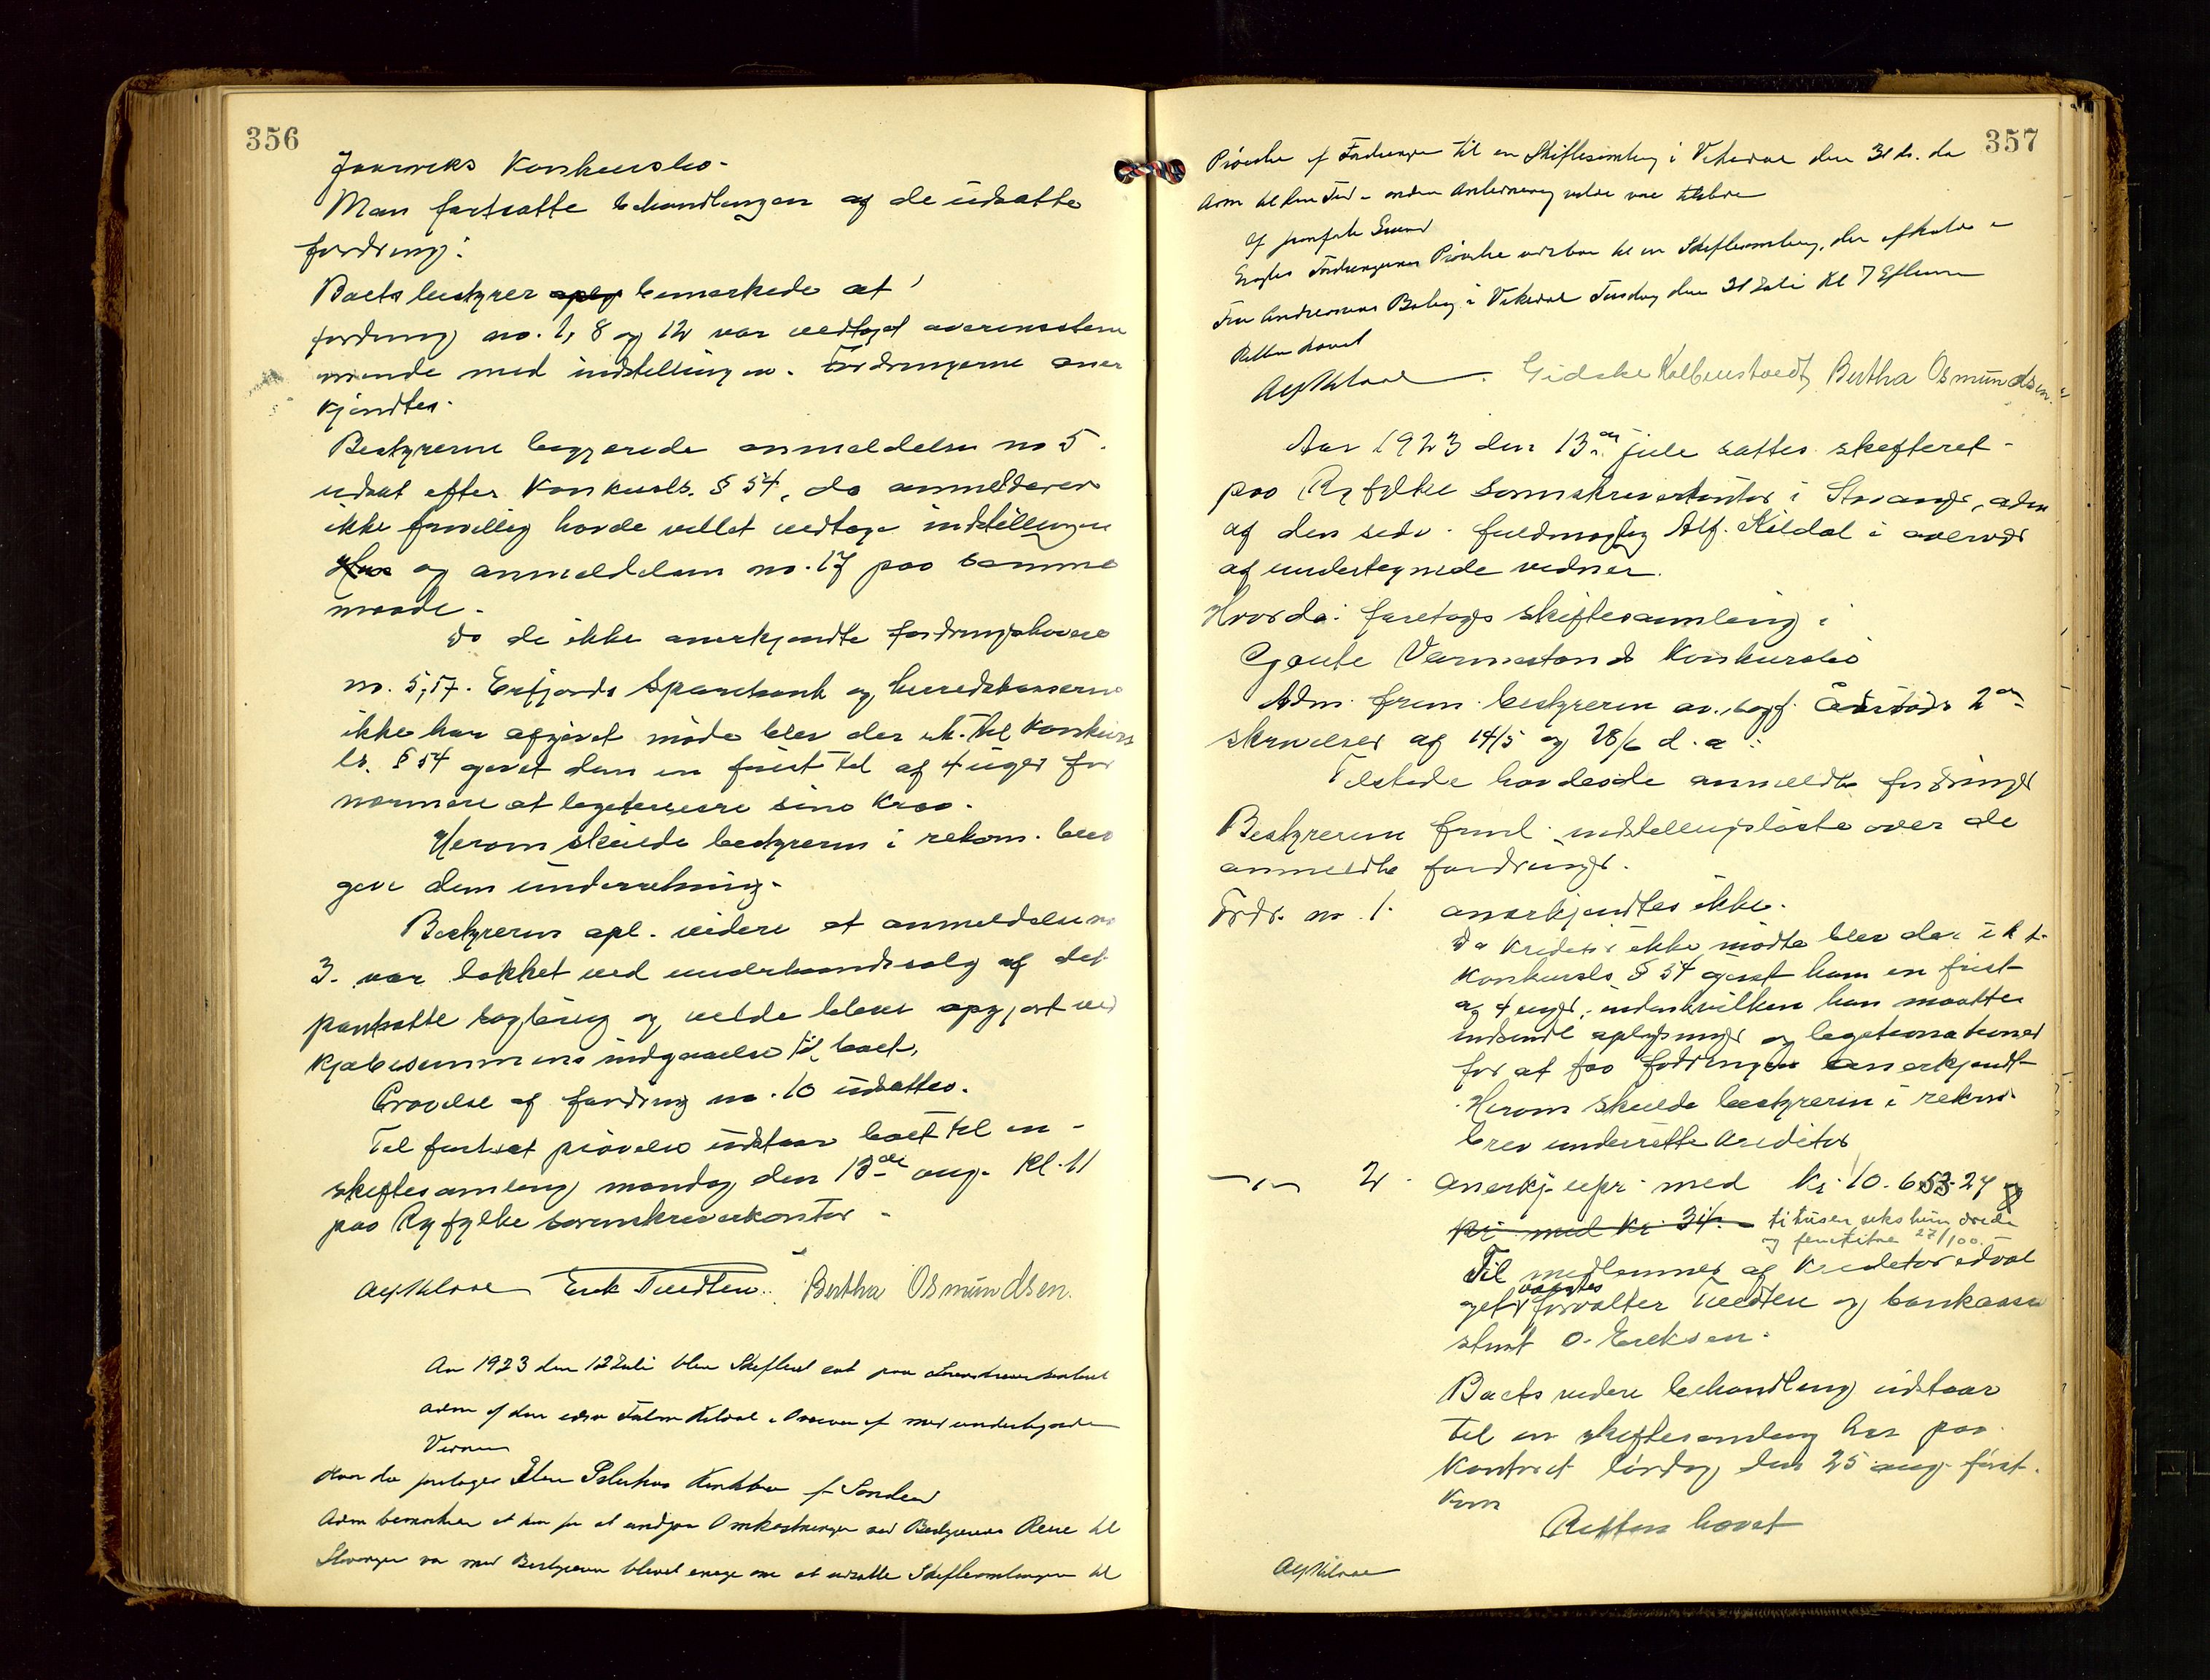 356
Jaarviks Konkursbo.
Man fortsatte behandlingen af de udsatte
fordring:
Boets bestyrer oply bemerkede at
fordring no. 1, 8 og 12 var vedtaget overensstem
mende med indstillingen. Fordringerne aner
kjendtes.
Bestyreren begjærede anmeldelse no 5.
udsat efter Konkursls. § 54, da anmelderen
ikke frivillig havde villet vedtage indstillingen
og anmeldelsen no. 17 paa samme
maade.
Da de ikke anerkjendte fordringshavere
no. 5, 17. Erfjords Sparebank og herredskasserne
ikke har afgivet møde blev der i h. til Konkurs
ls. § 54 givet dem en frist til af 4 uger for
nærmere at legitimere sine krav.
Herom skulde bestyreren i rekom. brev
give dem underretning.
Bestyreren opl. videre at anmeldelse no
3. var dækket ved underhaandssalg af det
pantsatte og vilde blive opgjort ved
kjøbesummens indgaaelse til boet.
Prøvelse af fordring no. 10 udsattes.
Til fortsat prøvelse udstaar boet til en
skiftesamling mandag den 13de aug. Kl. 11
paa Ryfylke sorenskriverkontor.
Alf Kildal Erik Tveedten. Bertha Osmundsen.
Aar 1923 den 12 Juli blev Skifteret sat paa Sorenskriverkontoret
adm af den edsv Fuldm Kildal i Overvær af med undertegnede
Vidner
Hvor da foretoges Konkursbo af Sandeid
Adm bemerket at han for at undgaa Omkostninger ved Bestyrerens Reise til
Stavanger var med Bestyreren blevet enige om at udsætte Skiftesamlingen til
357
Prøvelse af Fordringer til en Skiftesamling i Vikedal den 31 ds. da
Adm til den Tid i anden Anledning vilde være tilstede
Af foranførte Grund
Fordringernes Prøvelse udstaar til en Skiftesamling, der afholdes i
Fru Andreasens Bolig i Vikedal Tirsdag den 31 Juli Kl 7 Efterm
Retten hævet
Alf Kildal. Gidske Kolbenstvedt, Bertha Osmundsen.
Aar 1923 den 13de juli sattes skifteret
paa Ryfylke sorenskriverkontor i Stavanger, adm
af den edsv. fuldmægtig Alf. Kildal i overvær
af undertegnede vidner.
Hvorda: foretages skiftesamling i
Gaute Varmestands Konkursbo
Adm. frem. bestyreren ov.sagf. Aarstads 2de
skrivelser af 14/5 og 28/6 d. a.:
Tilstede havdes de anmeldte fordringer
Bestyreren freml. indstillingsliste over de
anmeldte fordringer.
Fordr. no. 1. anerkjendtes ikke.
Da Kreditor ikke mødte blev der i h t.
Konkursls. § 54 givet ham en frist
af 4 uger, indenhvilken han maatte
indsende oplysninger og legitimationer
for at faa fordringen anerkjendt
Herom skulde bestyreren i rekom.
brev underrette creditor
— " — 2. Anerkj. upr. med Kr. 10.653.27
pr. med Kr. titusen seks hundrede
og femtitre 27/100.
Til medlemmer af kreditorudval
get valgtes forvalter Tveedten og bankasse
O. Eriksen.
Boets videre behandling udstaar
til en skiftesamling her paa
kontoret lørdag den 25 aug. først.
kom
Retten hævet
Alf Kildal